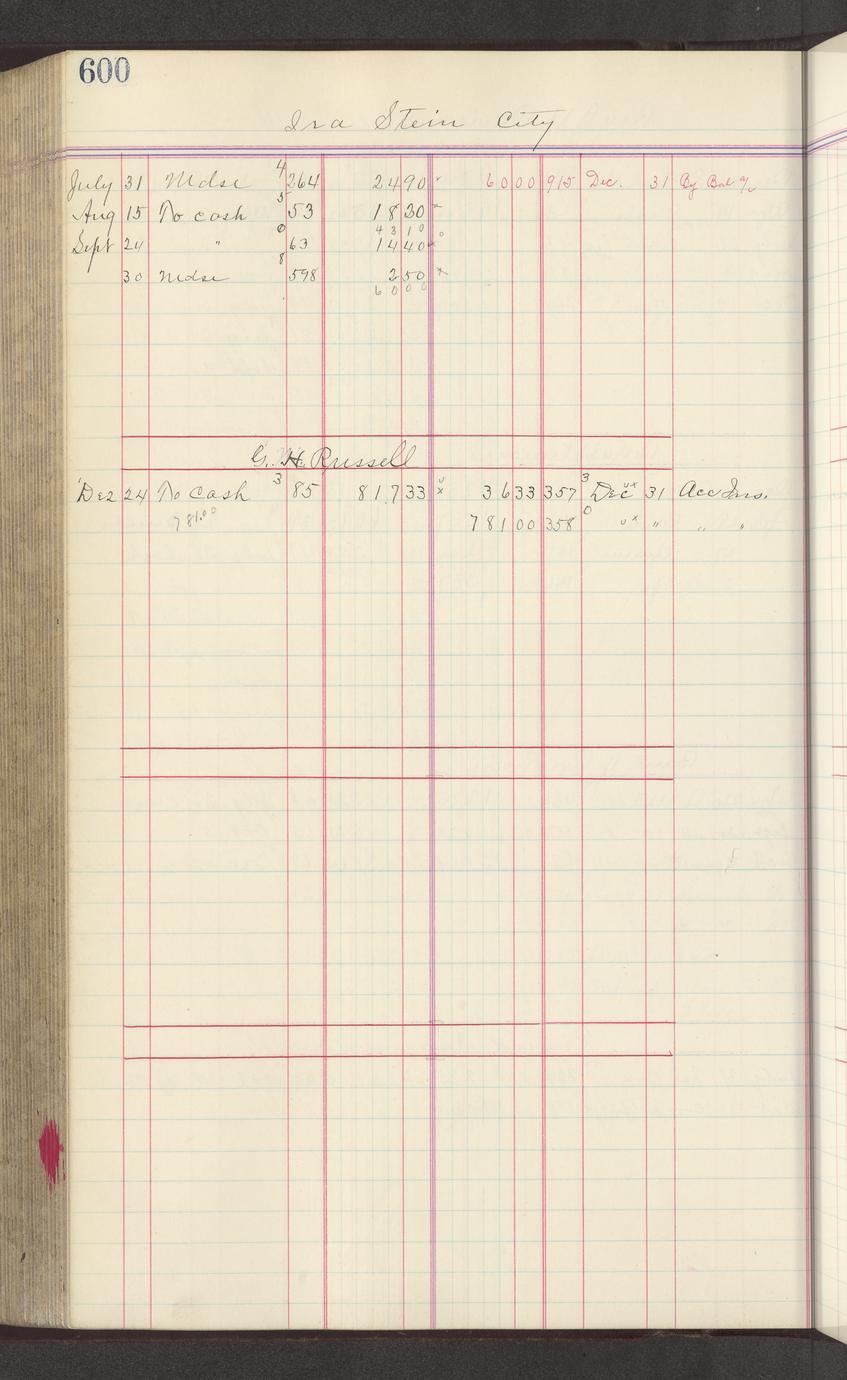 600
Ira Stein City
July 31 Mdse 4 264 24 90 x 60 00 915 Dec. 31 By Bal a/c
Aug 15 To cash 5 53 18 20 x
43 10
Sept 24 " 6 63 14 40 x
30 Mdse 8 598 2 50 x
60 00
G. H. Russell
Dec 24 To cash 3 85 817 33 x 36 33 357 3 Dec ux 31 Acc Ins.
781.00 781 00 358 0 ux " " "